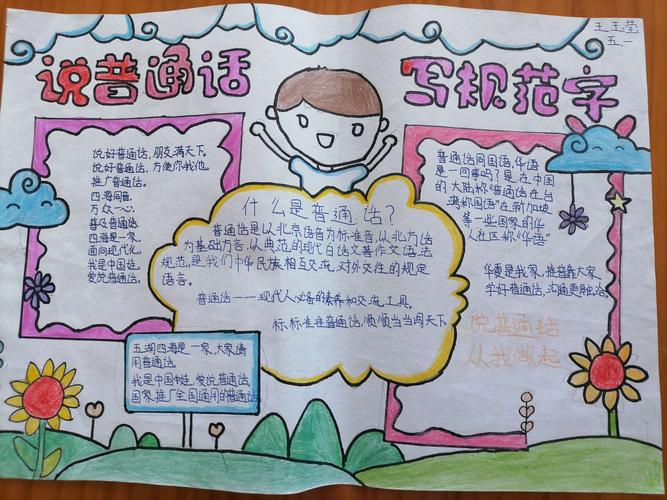 王玉莹
五一
说普通话
写规范字
说好普通话,朋友满天下。
说好普通话,方便你我他。
推广普通话。
四海同音
万众一心
普及普通话
四海是一家
面向现代化
我是中国娃
爱说普通话
什么是普通话?
普通话是以北京语音为标准音,以北方话
为基础方言,以典范的现代白话文著作文语法
规范,是我们中华民族相互交流、对外交往的规定
语言。
普通话——现代人必备的素养和交流工具。
标标准准普通话,顺顺当当闯天下
普通话同国语,华语
是一回事吗?是,在中国
的大陆称"普通话在台
湾称国语"在新加坡
等一些国家的华
人社区称"华语"
华夏是我家,推普靠大家
学好普通话,沟通更融洽
说普通话
从我做起
五湖四海是一家,大家请
用普通话
我是中国娃,爱说普通话
国家推广全国通用的普通话